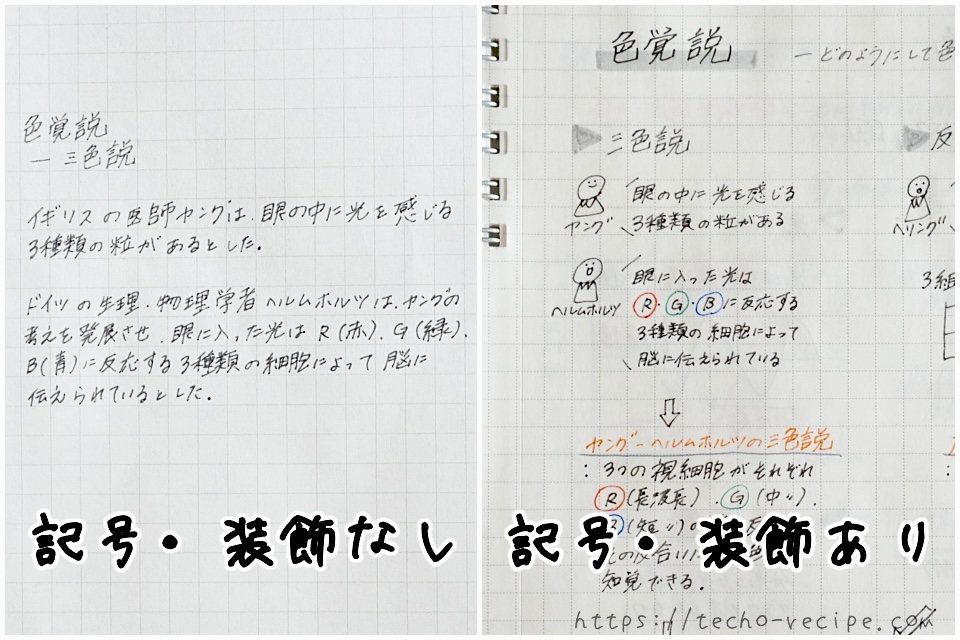 色覚説
― 三色説
イギリスの医師ヤングは、眼の中に光を感じる
3種類の粒があるとした。
ドイツの生理・物理学者ヘルムホルツは、ヤングの
考えを発展させ、眼に入った光は R(赤)、G(緑)、
B(青)に反応する3種類の細胞によって脳に
伝えられているとした。
記号・装飾なし
色覚説 ―どのようにして色
三色説
ヤング
眼の中に光を感じる
3種類の粒がある
ヘルムホルツ
眼に入った光は
R・G・Bに反応する
3種類の細胞によって
脳に伝えられている
ヤング-ヘルムホルツの三色説
:3つの視細胞がそれぞれ
R(長波長)、G(中〃)、
(短〃)
知覚できる。
反
ヘリング
3細
記号・装飾あり
https://techo-recipe.com